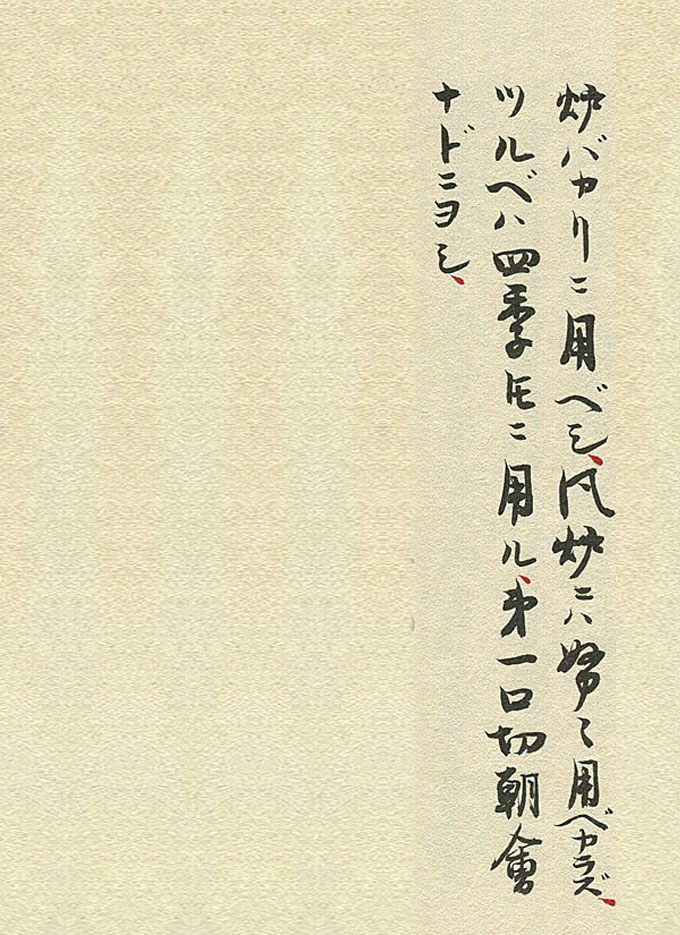 炉バカリニ用ベシ、風炉ニハ努〻用ベカラズ、
ツルベハ四季𪜈ニ用ル、第一口切朝會
ナドニヨシ、